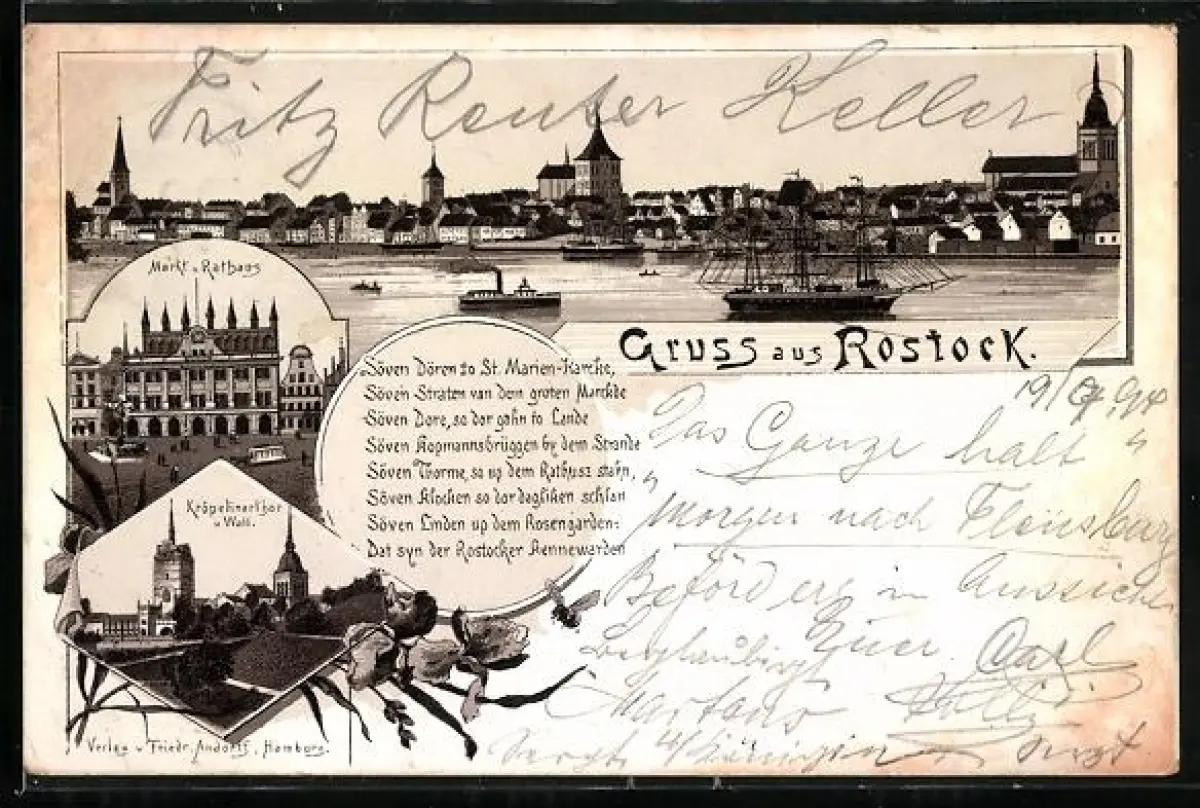 Fritz Reuter Keller
Markt u Rathaus
Gruss aus Rostock.
Söven Dören to St. Marien-Karcke,
Söven Straten van dem groten Marckde
Söven Dore, so dor gahn to Lande
Söven Kopmannsbrüggen by dem Strande
Söven Thorme, so up dem Rathuss stahn,
Söven Klocken so dar dagliken schlan
Söven Linden up dem Rosengarden:
Dat syn der Rostocker Kennewarden
Kröpelinerthor
u Wall.
Das Ganze halt "
" Morgen nach Flensburg
Beförderg in Aussicht
Euer Carl
Martens
Sergt
Verlag v Friedr. Andorff, Hamburg.